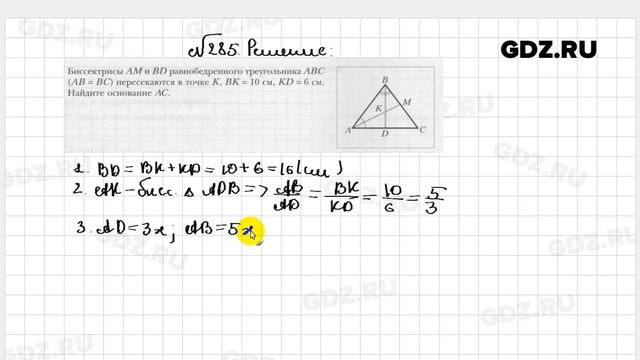 №285. Решение:
GDZ.RU
Биссектрисы AM и BD равнобедренного треугольника ABC
(AB = BC) пересекаются в точке K, BK = 10 см, KD = 6 см.
Найдите основание AC.
B
K
M
A
D
C
1. BD = BK + KD = 10 + 6 = 16 (см)
2. AK – бисс. Δ ADB => AB/AD = BK/KD = 10/6 = 5/3
3. AD = 3x; AB = 5x,